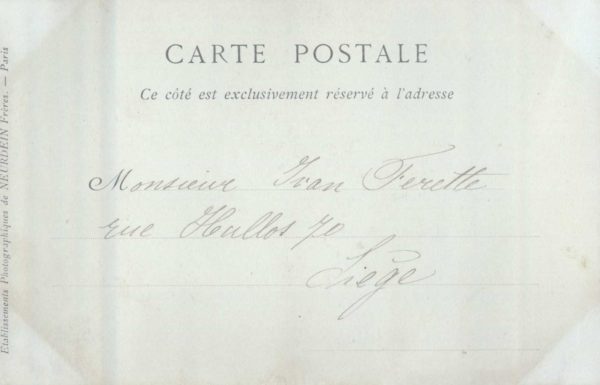 CARTE POSTALE
Ce côté est exclusivement réservé à l'adresse
Monsieur Ivan Ferette
rue Hullos 70
Liège
Etablissements Photographiques de NEURDEIN Frères. — Paris